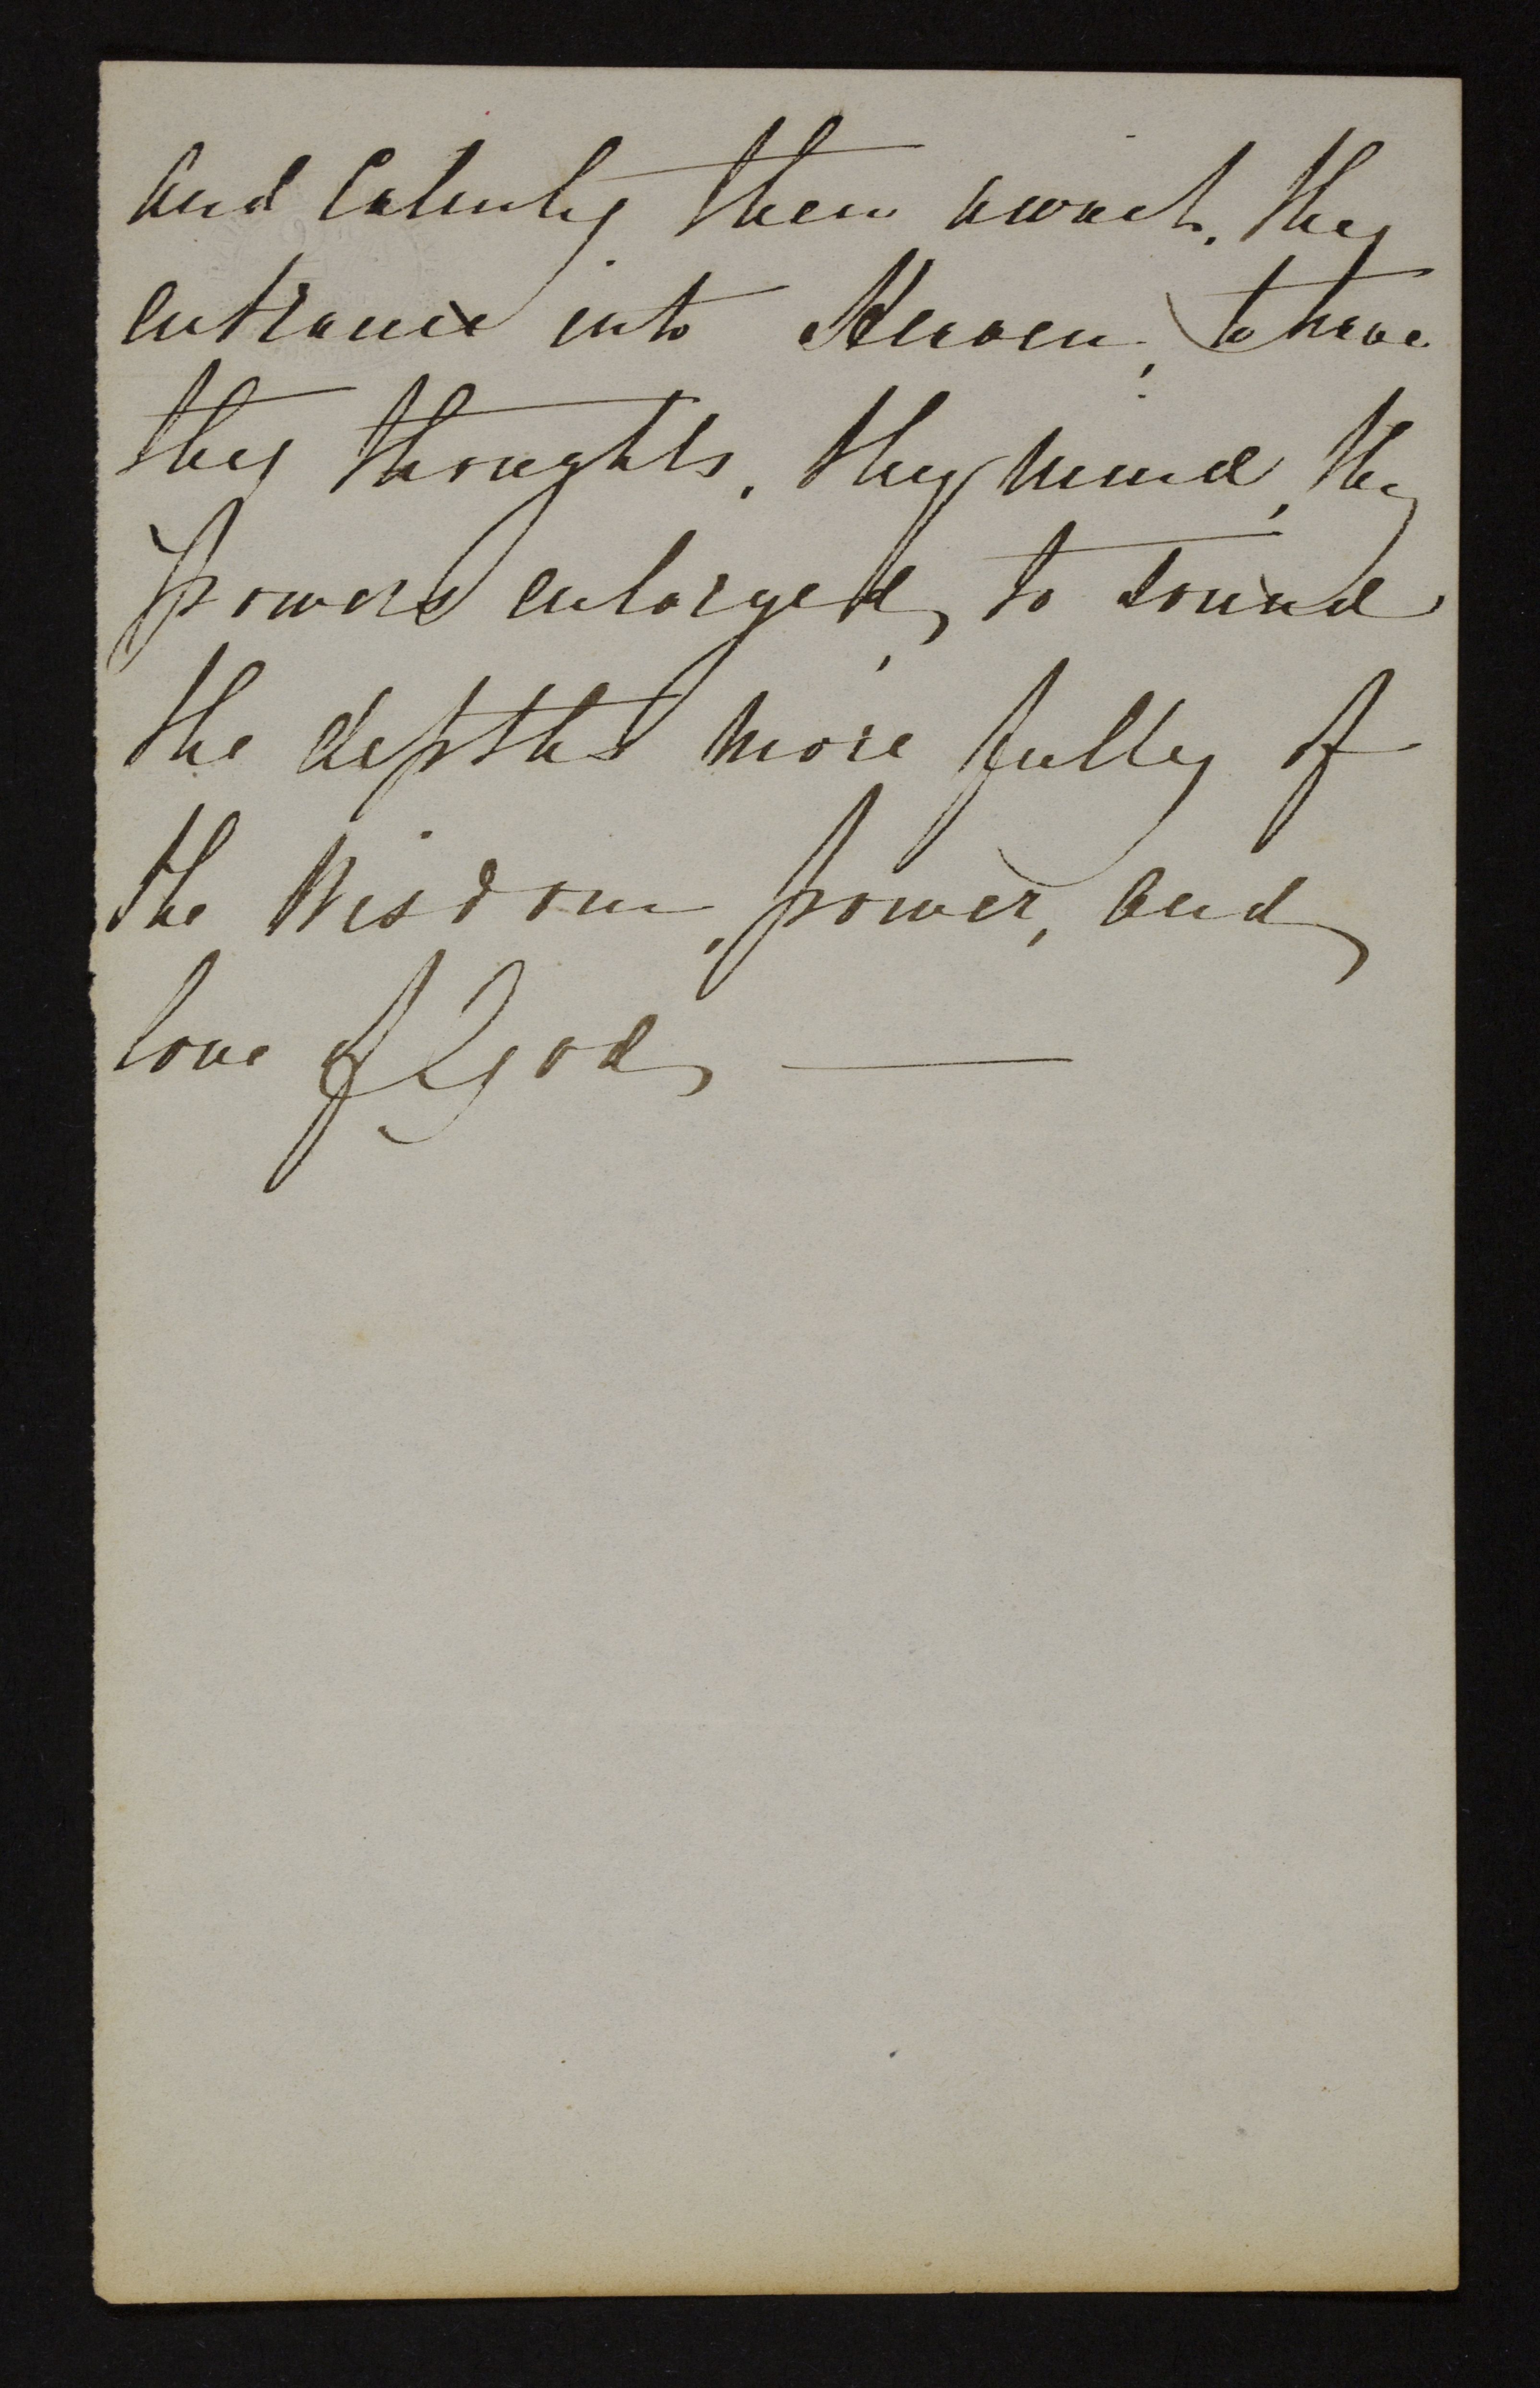 and calmly then await, thy
entrance into Heaven, to have
thy thoughts, thy mind, thy
powers enlarged, to sound
the depths more fully of
the Wisdom, power, and
love of God, —